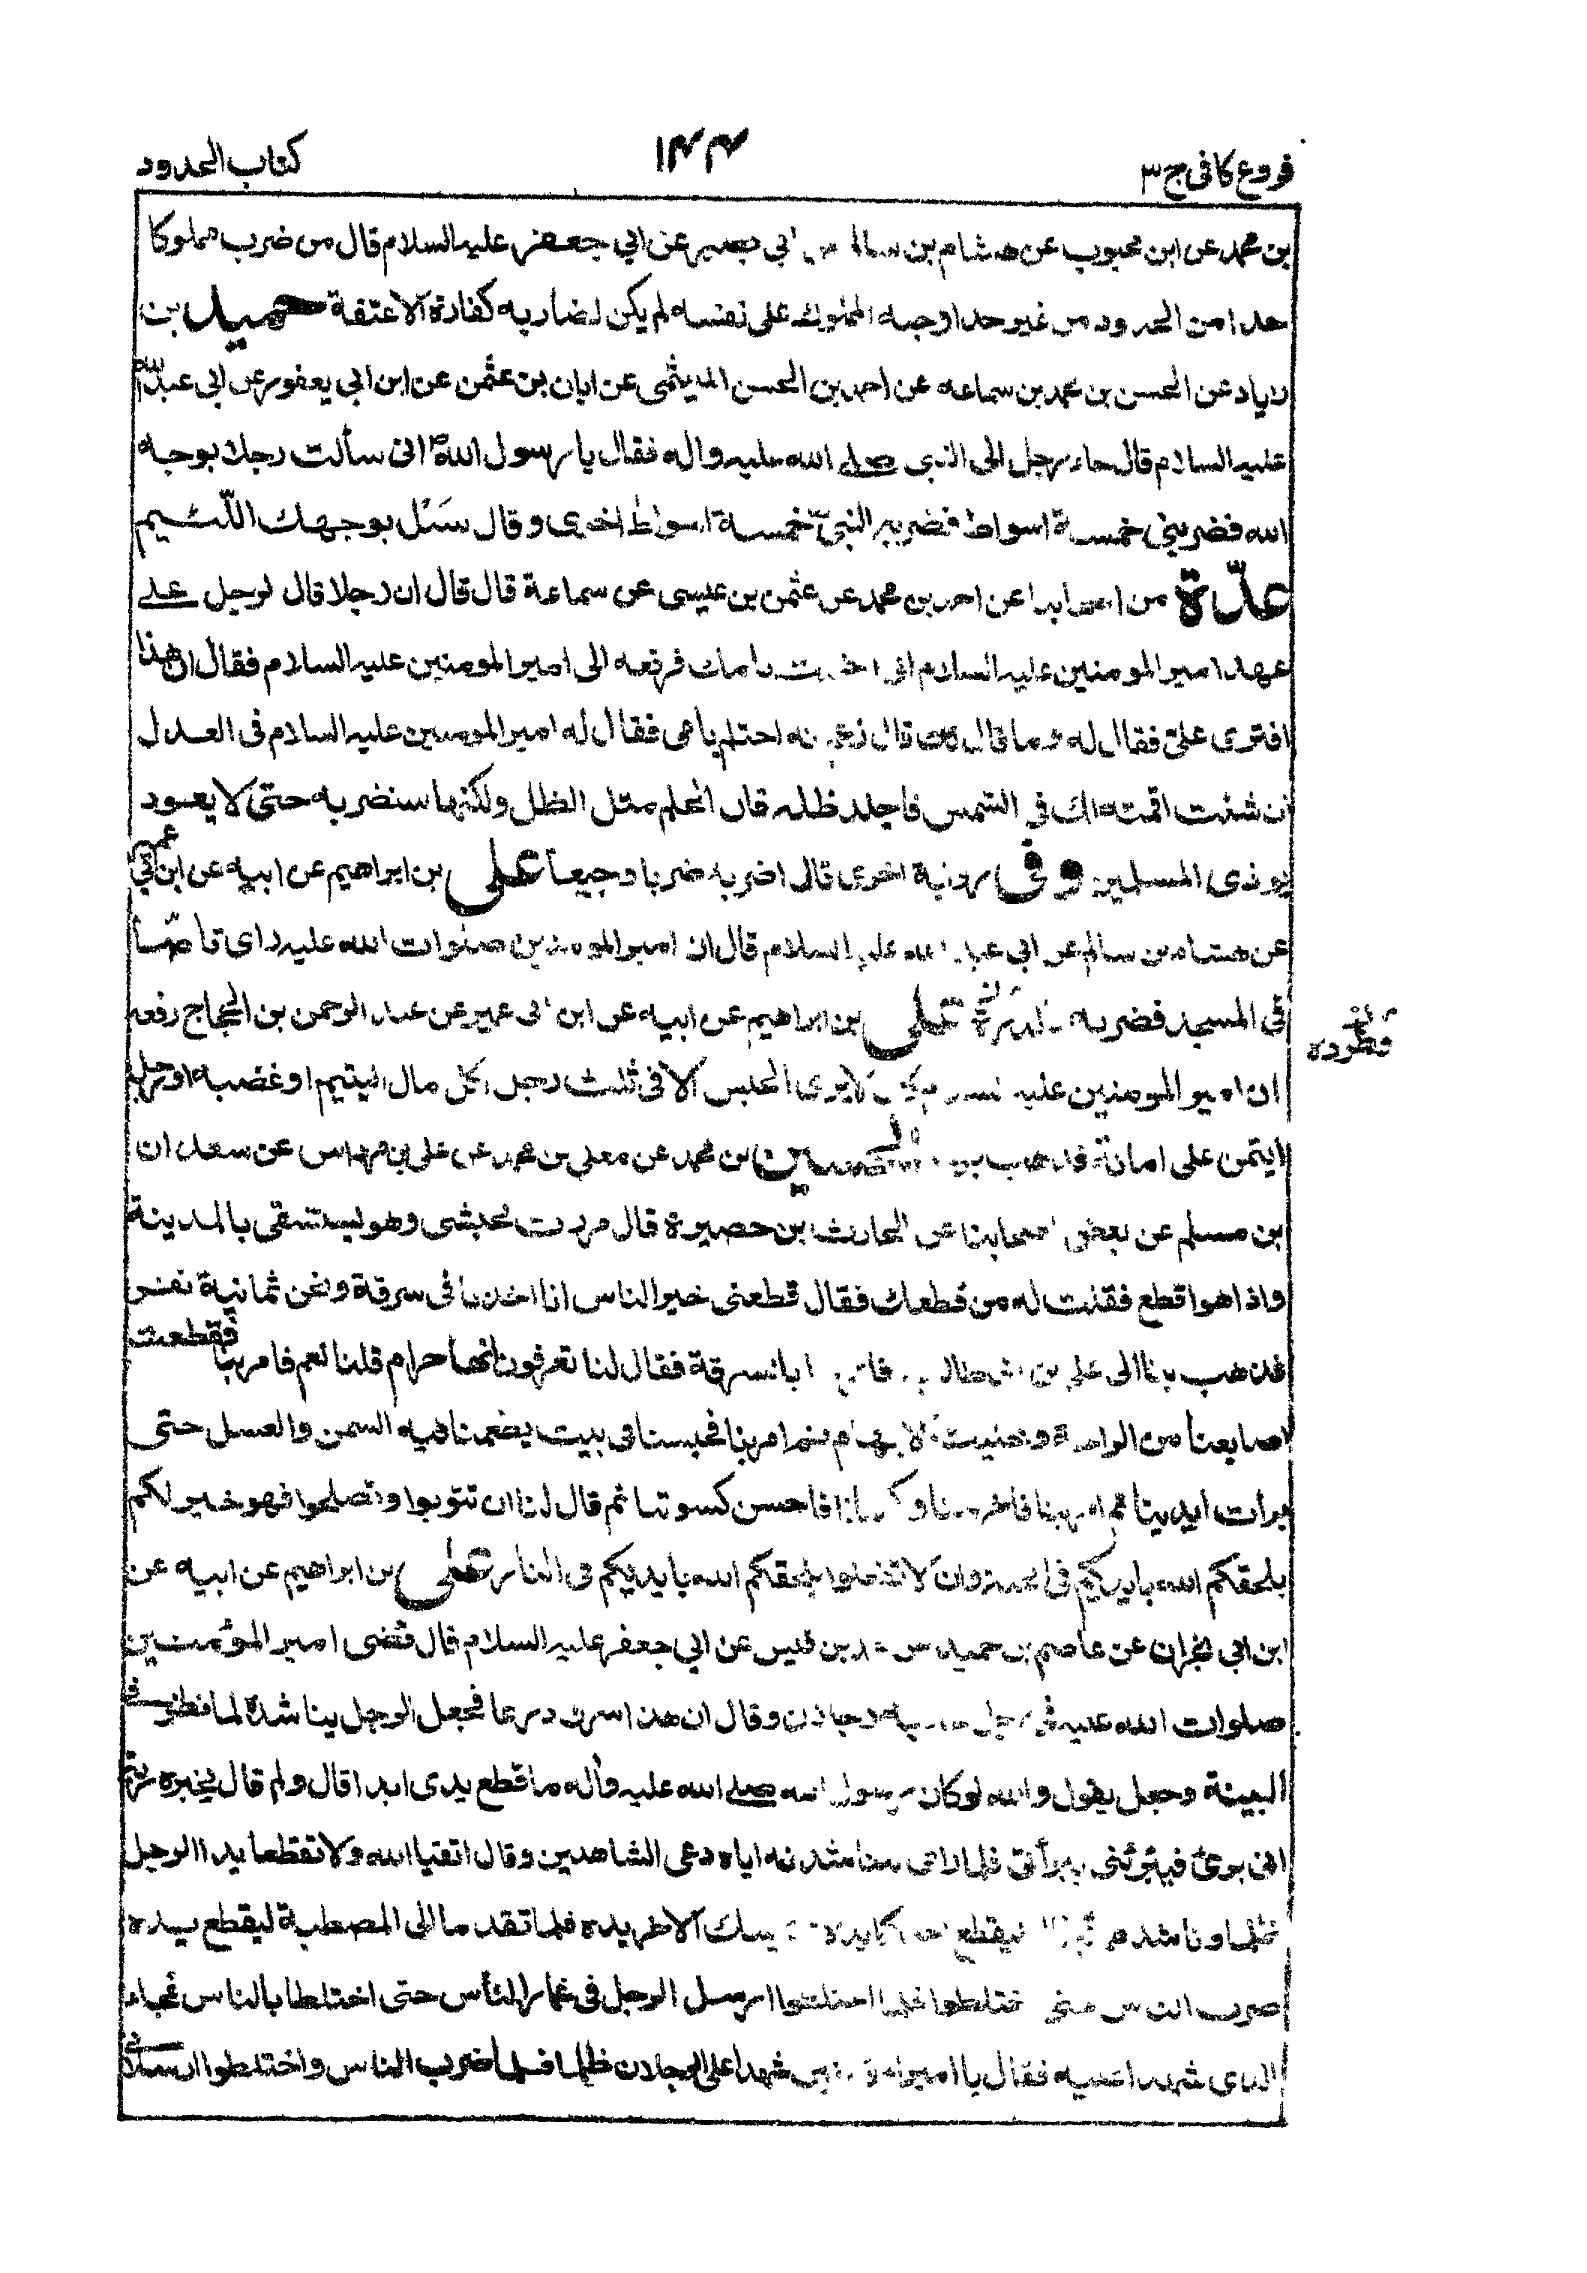 فروع كافى ج ٣
١٤٤
كتاب الحدود
بن محمد عن ابن محبوب عن هشام بن سالم عن ابي بصير عن ابي جعفر عليه السلام قال من ضرب مملوكا
حدا من الحدود من غير حد اوجبه المملوك على نفسه لم يكن لضاربه كفارة الا عتقه حميد بن
زياد عن الحسن بن محمد بن سماعه عن احمد بن الحسن الميثمى عن ابان بن عثمن عن ابن ابي يعفور عن ابى عبد الله
عليه السلام قال جاء رجل الى النبى صلى الله عليه واله فقال يا رسول الله انى سألت رجلا بوجه
الله فضربني خمسة اسواط فضربه النبى خمسة اسواط اخرى وقال سَلْ بوجهك اللئيم
عدّة من اصحابنا عن احمد بن محمد عن عثمن بن عيسى عن سماعة قال قال ان رجلا قال لرجل على
عهد امير المومنين عليه السلام انى احتلمت بامك فرفعه الى امير المومنين عليه السلام فقال ان هذا
افترى علىّ فقال له وما قال لك قال زعم انه احتلم بامى فقال له امير المومنين عليه السلام فى العدل
ان شئت اقمته لك في الشمس فاجلد ظله فان الحلم مثل الظل ولكنها سنضربه حتى لا يعود
يوذى المسلمين وفى رواية اخرى قال اضربه ضربا وجيعا على بن ابراهيم عن ابيه عن ابن ابي عمير
عن هشام بن سالم عن ابي عبد الله عليه السلام قال ان امير المومنين صلوات الله عليه راى قاصّا
فى المسجد فضربه بالدرة على بن ابراهيم عن ابيه عن ابن ابى عمير عن عبد الرحمن بن الحجاج رفعه
وطرده
ان امير المومنين عليه السلام كان لا يرى الحبس الا فى ثلث رجل اكل مال اليتيم او غصبه او رجل
ايتمن على امانة فذهب بها الحسين بن محمد عن معلى بن محمد عن على بن مرداس عن سعدان
بن مسلم عن بعض اصحابنا عن الحارث بن حصيرة قال مررت بحبشى وهو يستسقى بالمدينة
واذا هو اقطع فقلت له من قطعك فقال قطعنى خير الناس انا اخذنا فى سرقة ونحن ثمانية نفر
فذهب بنا الى على بن ابى طالب فاقررنا بالسرقة فقال لنا تعرفون انها حرام قلنا نعم فامر بنا فقطعت
اصابعنا من الراحة وخليت الابهام ثم امر بنا فحبسنا فى بيت يطعمنا فيه السمن والعسل حتى
برأت ايدينا ثم امر بنا فاخرجنا وكسانا فاحسن كسوتنا ثم قال لنا ان تتوبوا وتصلحوا فهو خير لكم
يلحقكم الله بايديكم فى الجنة وان لا تفعلوا يلحقكم الله بايديكم فى النار على بن ابراهيم عن ابيه عن
ابن ابى نجران عن عاصم بن حميد عن محمد بن قيس عن ابي جعفر عليه السلام قال قضى امير المؤمنين
صلوات الله عليه فى رجل جاء به رجلان وقالا ان هذا سرق درعا فجعل الرجل يناشده لما نظر فى
البينة وجعل يقول والله لو كان رسول الله صلى الله عليه وأله ما قطع يدى ابدا قال ولم قال يخبره ربه
انى بريء فيبرئنى ببرأتى فلما راى مناشدته اياه دعى الشاهدين وقال اتقيا الله ولا تقطعا يد الرجل
ظلما وناشدهما ثم قال ليقطع احدكما يده ويمسك الاخر يده فلما تقدما الى المصطبة ليقطع يده
ضرب الناس حتى اختلطوا فلما اختلطوا ارسلا الرجل فى غمار الناس حتى اختلطا بالناس فجاء
الذى شهدا عليه فقال يا امير المومنين شهد على الرجلان ظلما فلما ضرب الناس واختلطوا ارسلانى